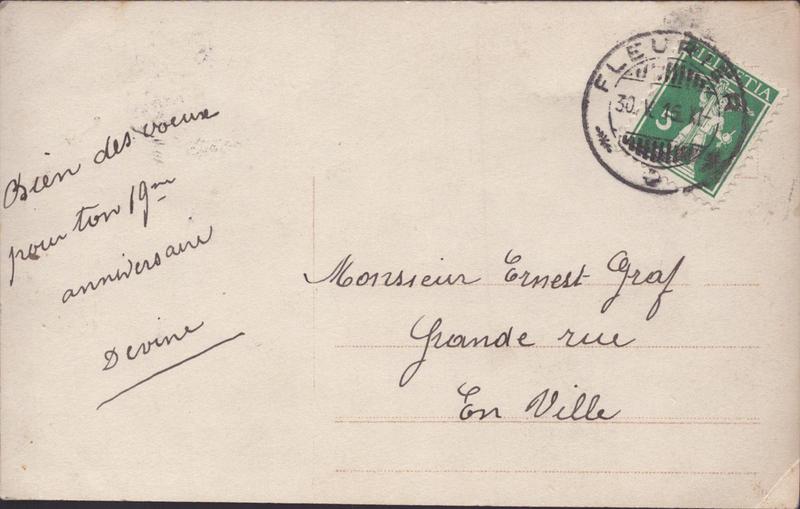 Bien des voeux
pour ton 19me
anniversaire
Devine
Monsieur Ernest Graf
Grande rue
En Ville
FLEURIER
30. V. 15. XI
HELVETIA
5